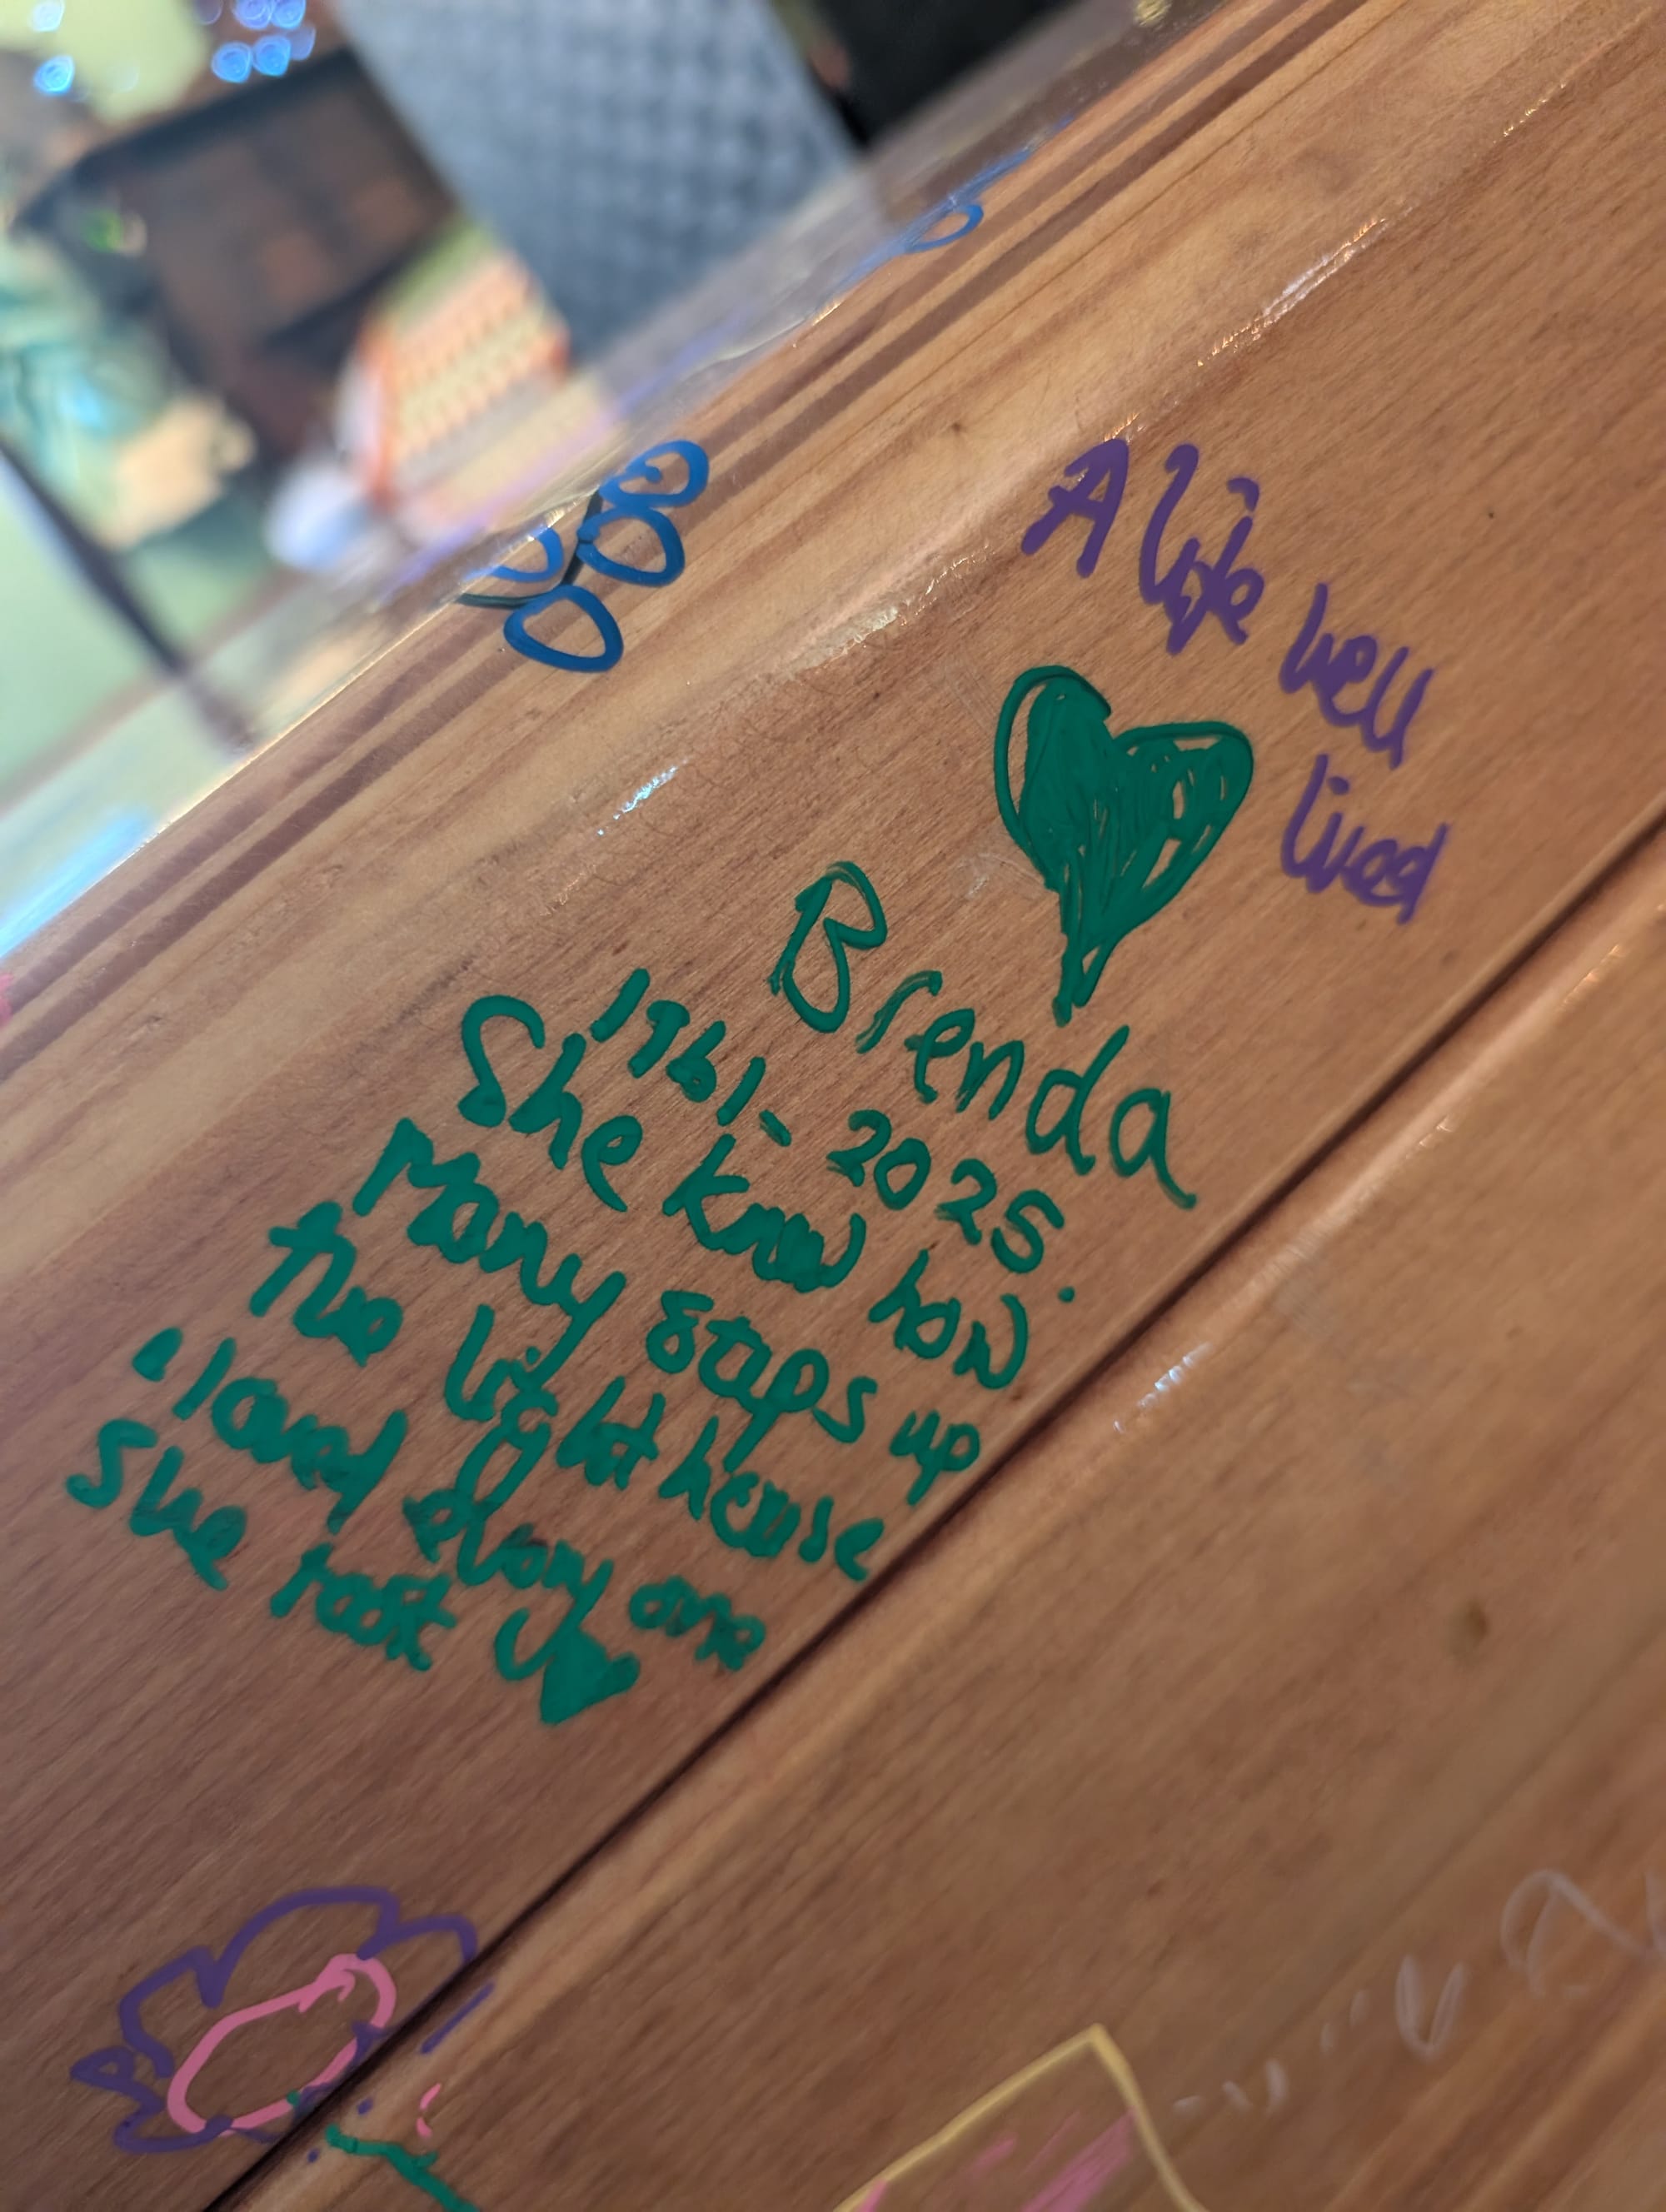 A life well
lived
Brenda
1961-2025.
She know how
Many steps up
the light house
i loved every one
she took